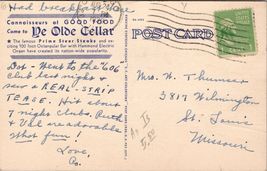 Had breakfast here
Connoisseurs of GOOD FOOD
Come to Ye Olde Cellar
The famous Prime Steer Steaks and exciting
100 foot Octangular Bar with Hammond Electric
Organ have created its nation-wide popularity
POST CARD
Dot & Went to the "606"
club last night &
saw a REAL-STRIP
TEASE. Hit about
7 night clubs. Ruth
& Val are adorables.
What fun!
Love,
Mrs. W. Thumser
3817 Wilmington
St. Louis
Missouri